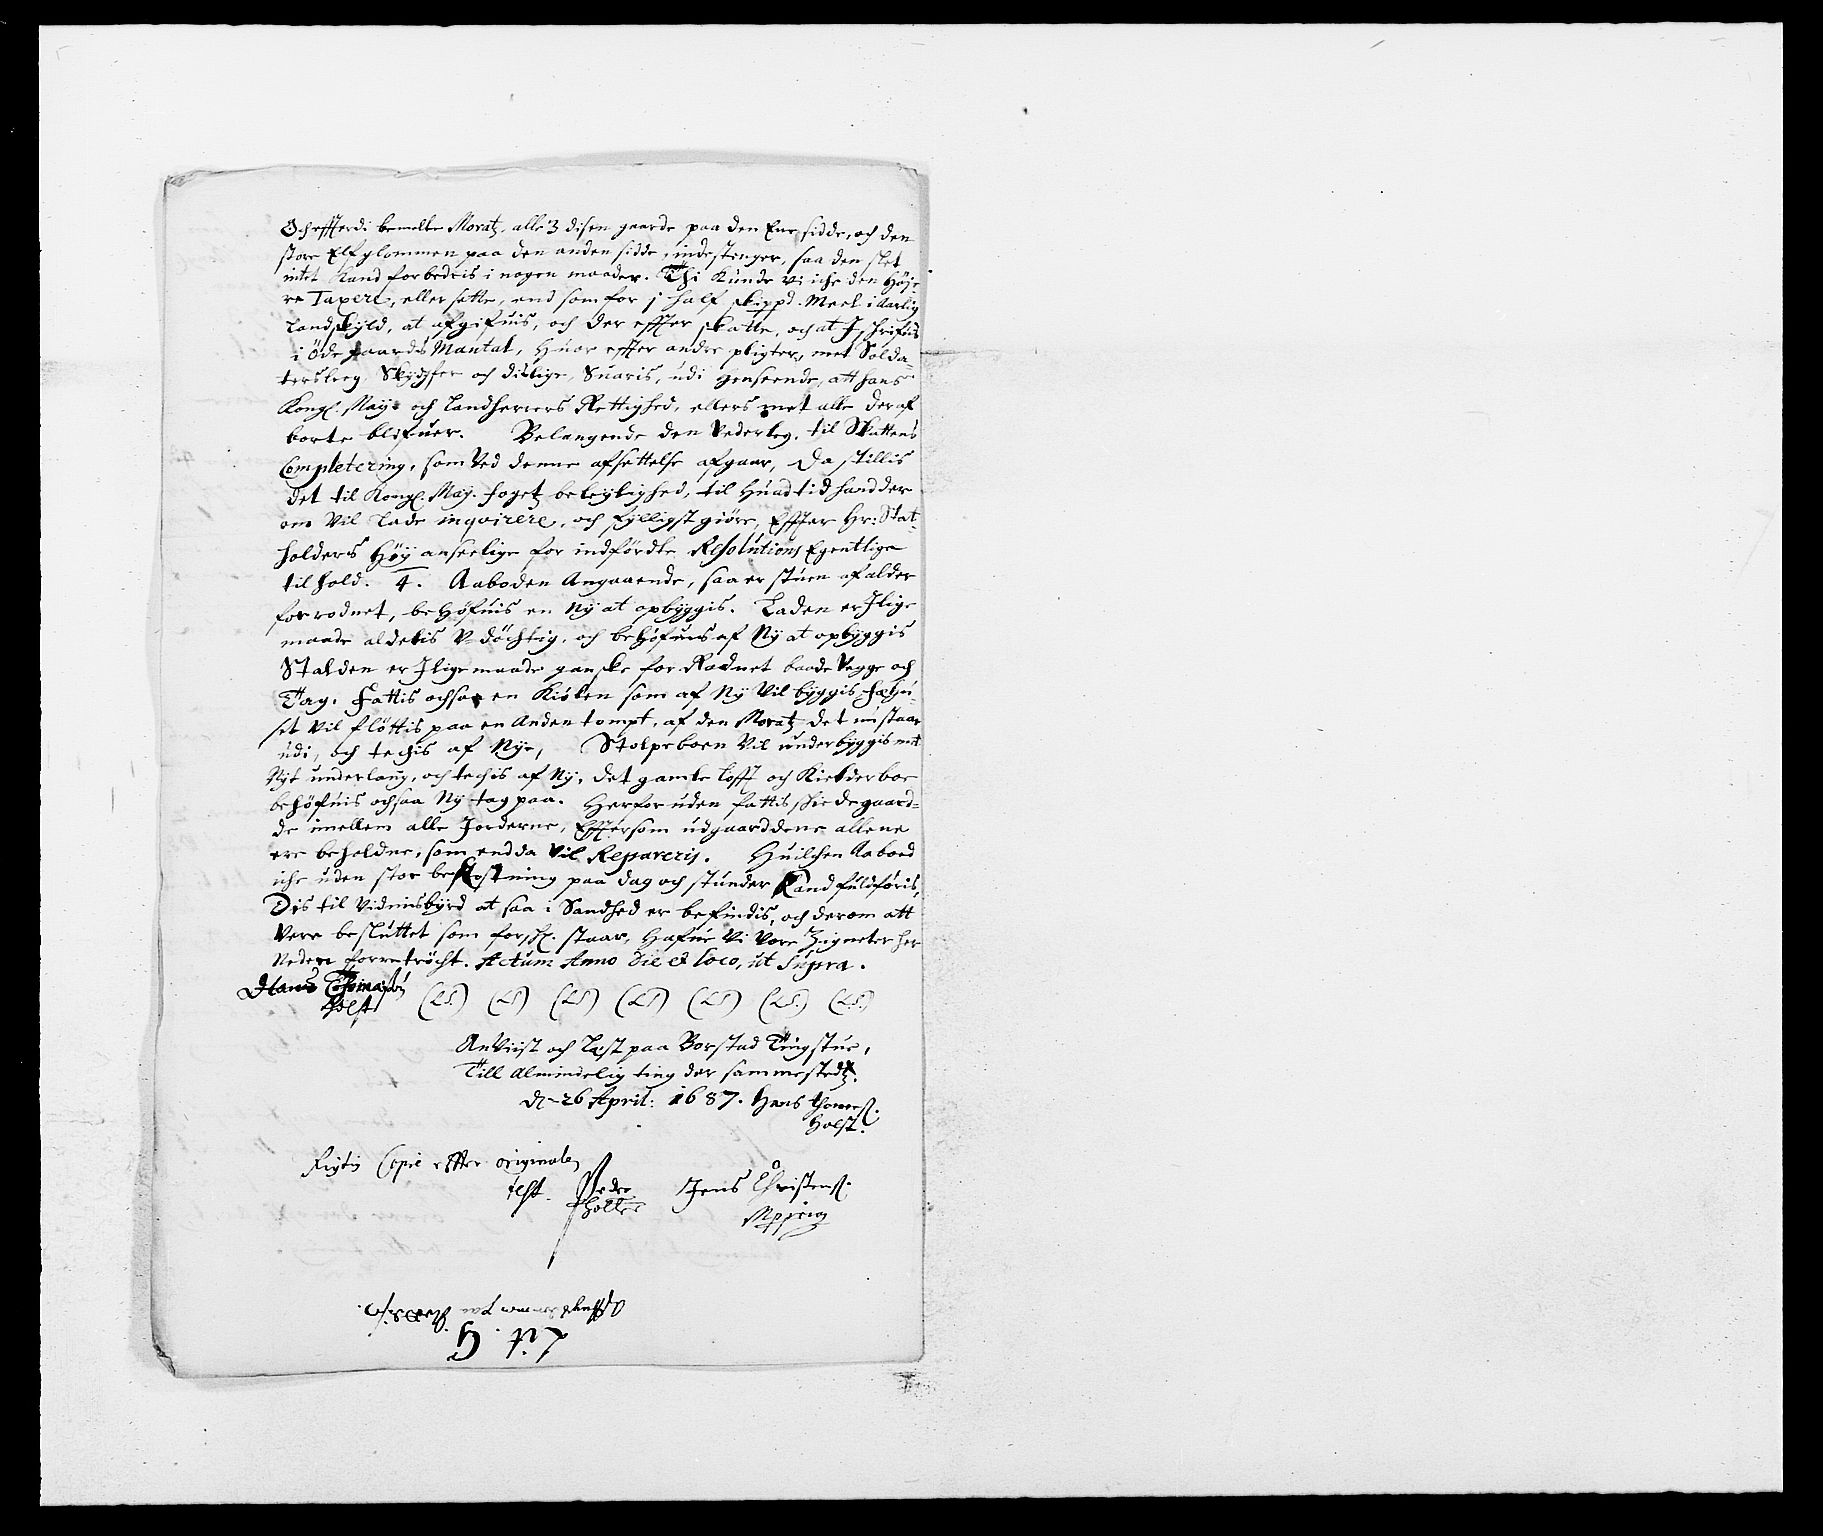 Och effterdi bemelte Moratz, alle 3 disen gaarde paa den Ene sidde, och den
store Elf glommen paa den anden sidde, indestenger, saa den slet
intet Kand forbedris i nogen maader. Thi Kunde vi iche den Høje-
re Taxere, eller sette, end som for j half skippd. Meel i Aarlig
Landskyld, at afgifuis, och der effter skatte, och at Jschrifuis
i Øde gaards Mantal, Huor effter andre pligter, met Solda-
tersleeg, Skydsfer och dislige, Suaris, udi Henseende, att hans
Kongl. May: och Landherrers Rettighed, ellers met alle deraf
borte blifuer. Belangende den Vederleg, til Skattens
Completering, som Ved denne afsettelse afgaar, da stillis
det til Kongl. May. foget beleylighed, til Huad tid hand der
om Vil lade inqvirere, och fylligst giøre, Effter Hr: Stat-
holders Høy anseelige for indførdte Resolutions Egentlige
til hold. 4. Aaboden Angaaende, saa er stuen af alder
forrodnet, behøfuis en Ny at opbyggis. Laden er Jlige
maade aldelis V-døchtig, och behøfuis af Ny at opbyggis
Stalden er Jlige maade ganske for Raadnet baade Vegge och
Tag. Fattis ochsaa en Kiølen som af Ny Vil byggis, fæhu-
set Vil fløttis paa en Anden tompt, af den Moratz det nu staar
udi, och techis af Nye, Stolpeboen Vil underbyggis met
Nyt underlaug, och techis af Ny, det gamle Lofft och Kielderboe
behøfuis ochsaa Ny tag paa. Herforuden fattis skiedegaard-
de imellem alle Jorderne, Effttersom udgaarddene allene
ere beholdne, som endda Vil Repareris. Huilchen Aaboed
iche uden stor bekostning paa dag och stunder Kand fuldføris,
Dis til Vidnisbyrd at saa i Sandhed er befindis, och derom att
Vere besluttet som forsch. staar, Hafue Vi Vore Zigneter her
Neden forretrøcht. Actum Anno Die et loco, ut supra.
Hans Thomasøn
Holst (LS) (LS) (LS) (LS) (LS) (LS) (LS)
AnViist och Læst paa Borstad Tingstue,
Till Almindelig ting der sammestedtz.
d. 26 April: 1687. Hans thomes.
Holst.
Rigtig Copie effter originalen
test. Pedre Jens Christens.
Holter
Lit. G